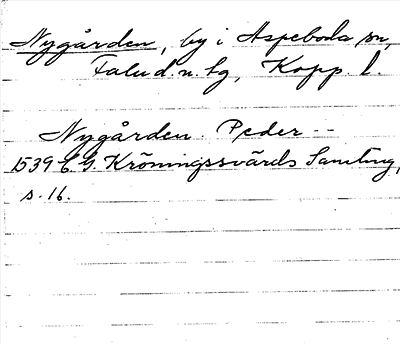 Nygården, by i Aspeboda sn,
Falu d.n. tg, Kopp. l.
Nygården. Peder --
1539 C.G. Kröningssvärds Samling,
s. 16.